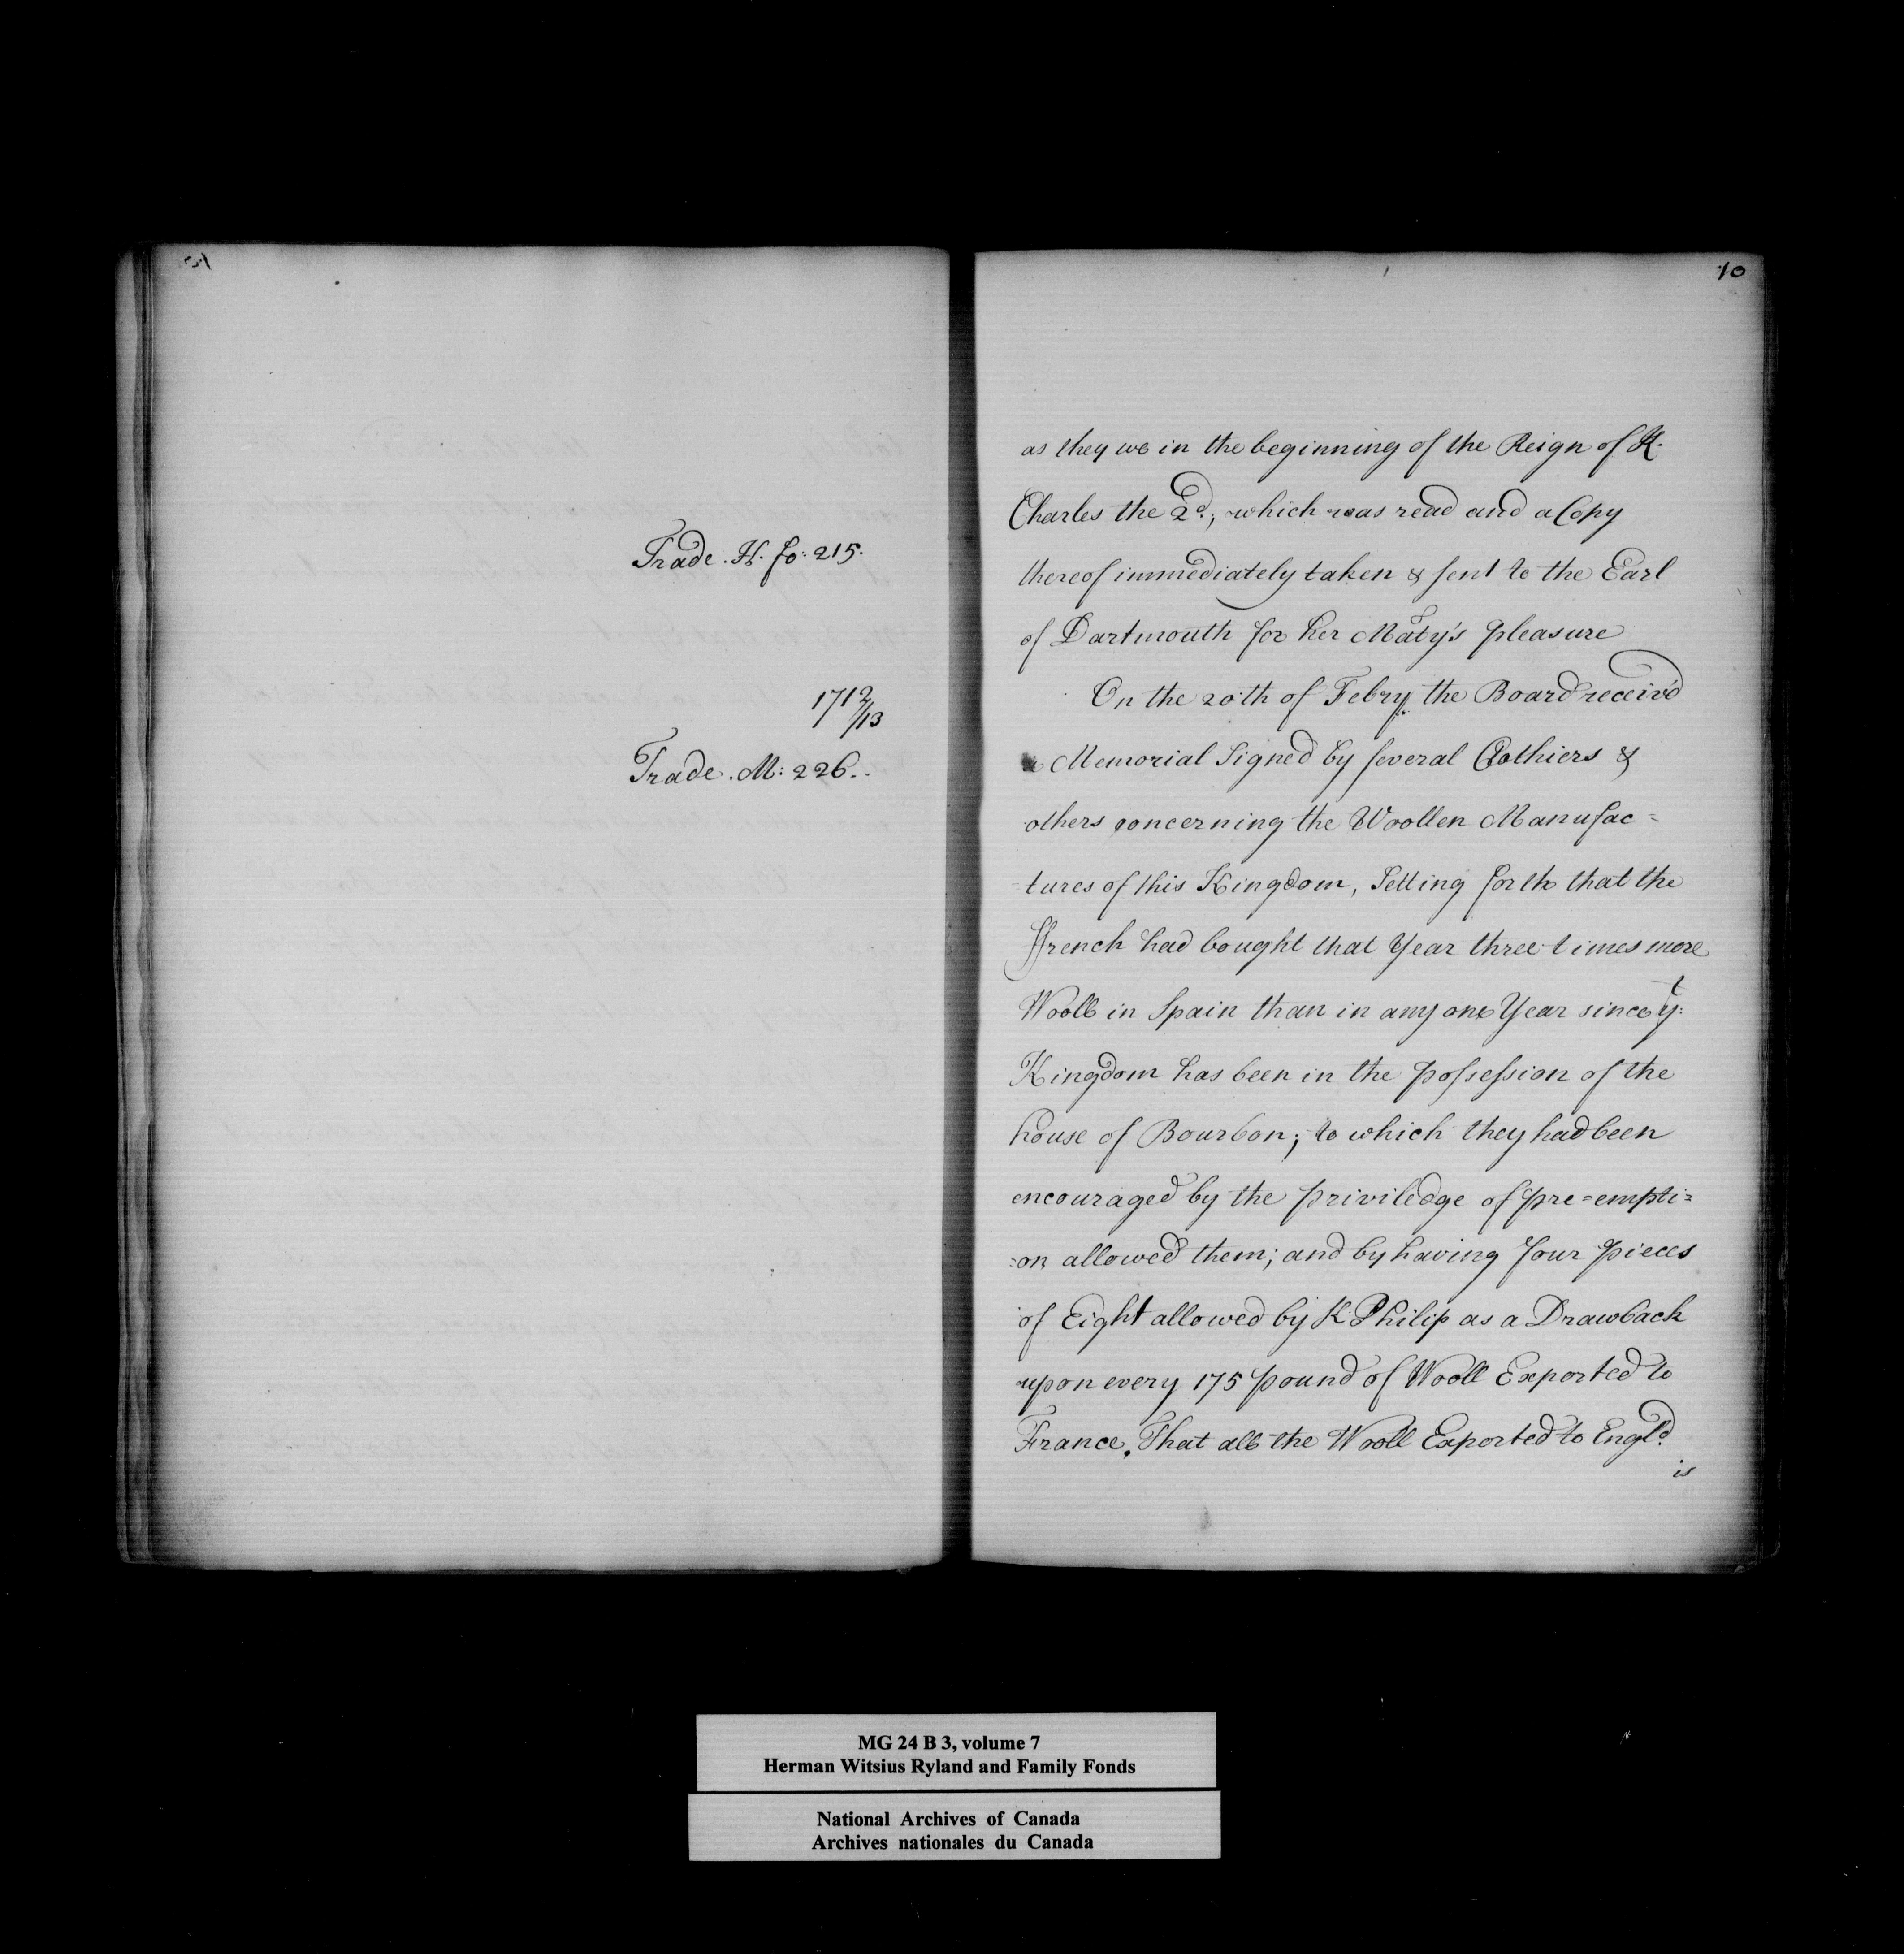 Trade. H. fo: 215.
1712/13
Trade. M: 226.
10
as they we in the beginning of the Reign of K.
Charles the 2d, which was read and a Copy
thereof immediately taken & sent to the Earl
of Dartmouth for her Maty's pleasure
On the 20th of Febry the Board receiv'd
a Memorial Signed by several Clothiers &
others concerning the Woollen Manufac=
=tures of this Kingdom, Setting forth that the
ffrench had bought that Year three times more
Wooll in Spain than in any one Year since yt
Kingdom has been in the possession of the
house of Bourbon; to which they had been
encouraged by the priviledge of pre=empti=
=on allowed them; and by having four pieces
of Eight allowed by K Philip as a Drawback
upon every 175 pound of Wooll Exported to
France. That all the Wooll Exported to Engld
is
MG 24 B 3, volume 7
Herman Witsius Ryland and Family Fonds
National Archives of Canada
Archives nationales du Canada